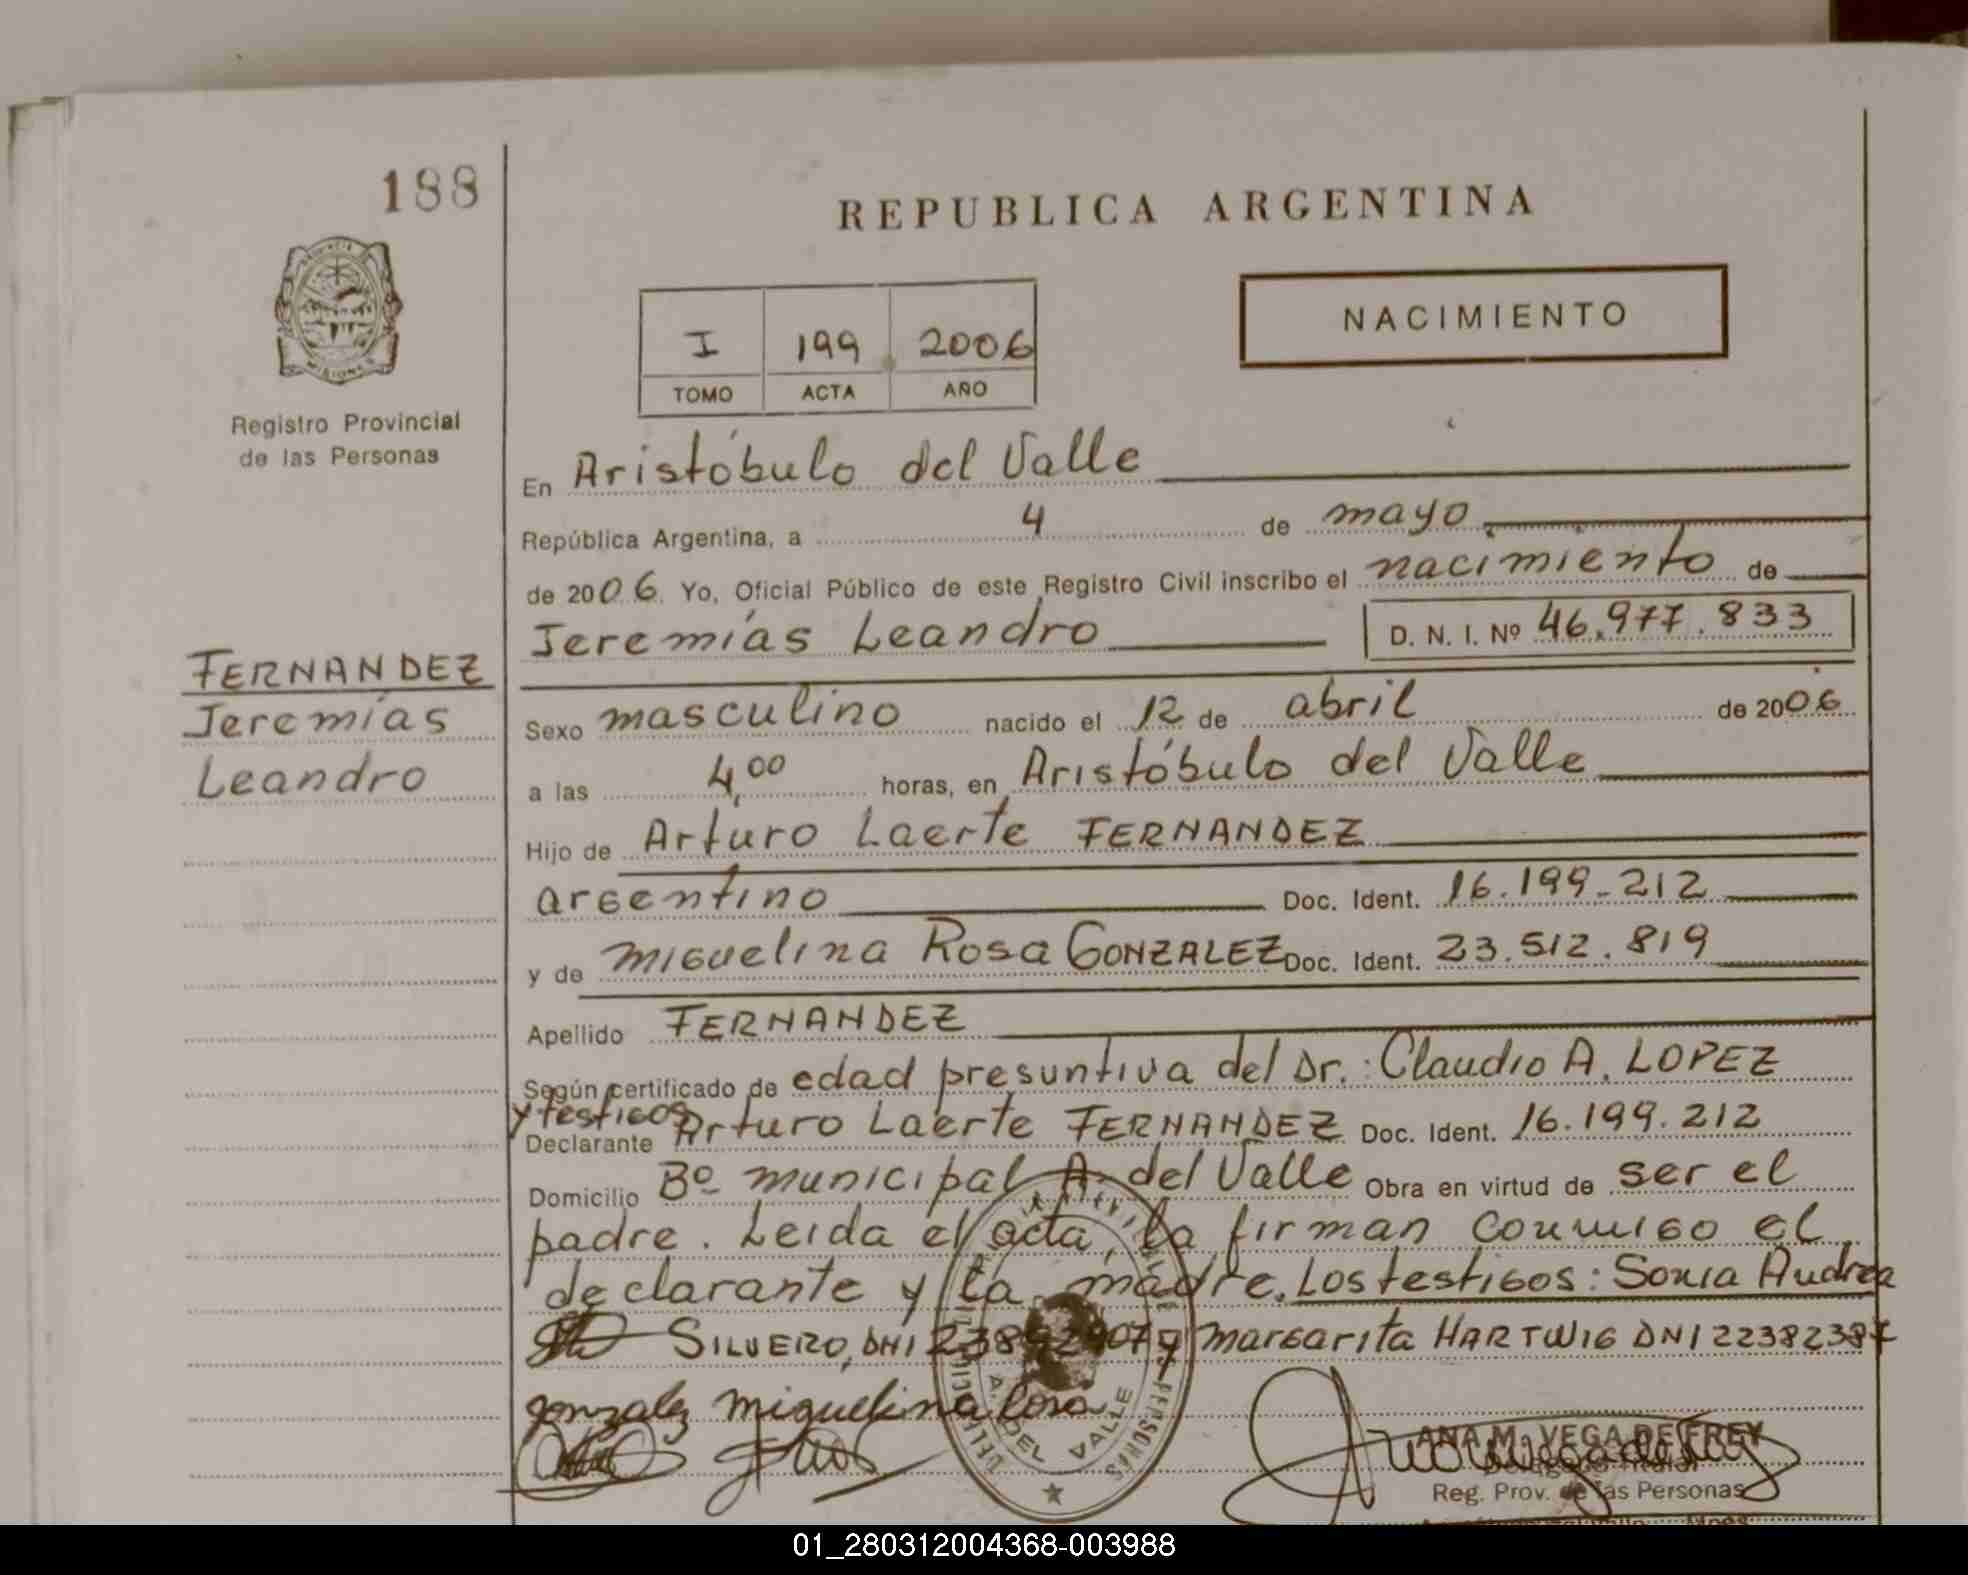 188
REPUBLICA ARGENTINA
PROVINCIA
MISIONES
Registro Provincial
de las Personas
I 199 2006
TOMO ACTA AÑO
NACIMIENTO
En Aristóbulo del Valle
República Argentina, a 4 de mayo
de 2006. Yo, Oficial Público de este Registro Civil inscribo el nacimiento de
Jeremías Leandro D. N. I. Nº 46.977.833
FERNANDEZ
Jeremías
Leandro
Sexo masculino nacido el 12 de abril de 2006
a las 4,00 horas, en Aristóbulo del Valle
Hijo de Arturo Laerte FERNANDEZ
argentino Doc. Ident. 16.199.212
y de Miguelina Rosa GONZALEZ Doc. Ident. 23.512.819
Apellido FERNANDEZ
Según certificado de edad presuntiva del Dr.: Claudio A. LOPEZ
y testigos
Declarante Arturo Laerte FERNANDEZ Doc. Ident. 16.199.212
Domicilio Bº municipal A. del Valle Obra en virtud de ser el
padre. Leida el acta, la firman conmigo el
declarante y la madre. Los testigos: Sonia Andrea
SILVERO, DNI y Margarita HARTWIG DNI 22382387
gonzalez miguelina Rosa
A. DEL VALLE
PERSONAS
ANA M. VEGA DE FREY
Delegada Titular
Reg. Prov. de las Personas
01_280312004368-003988